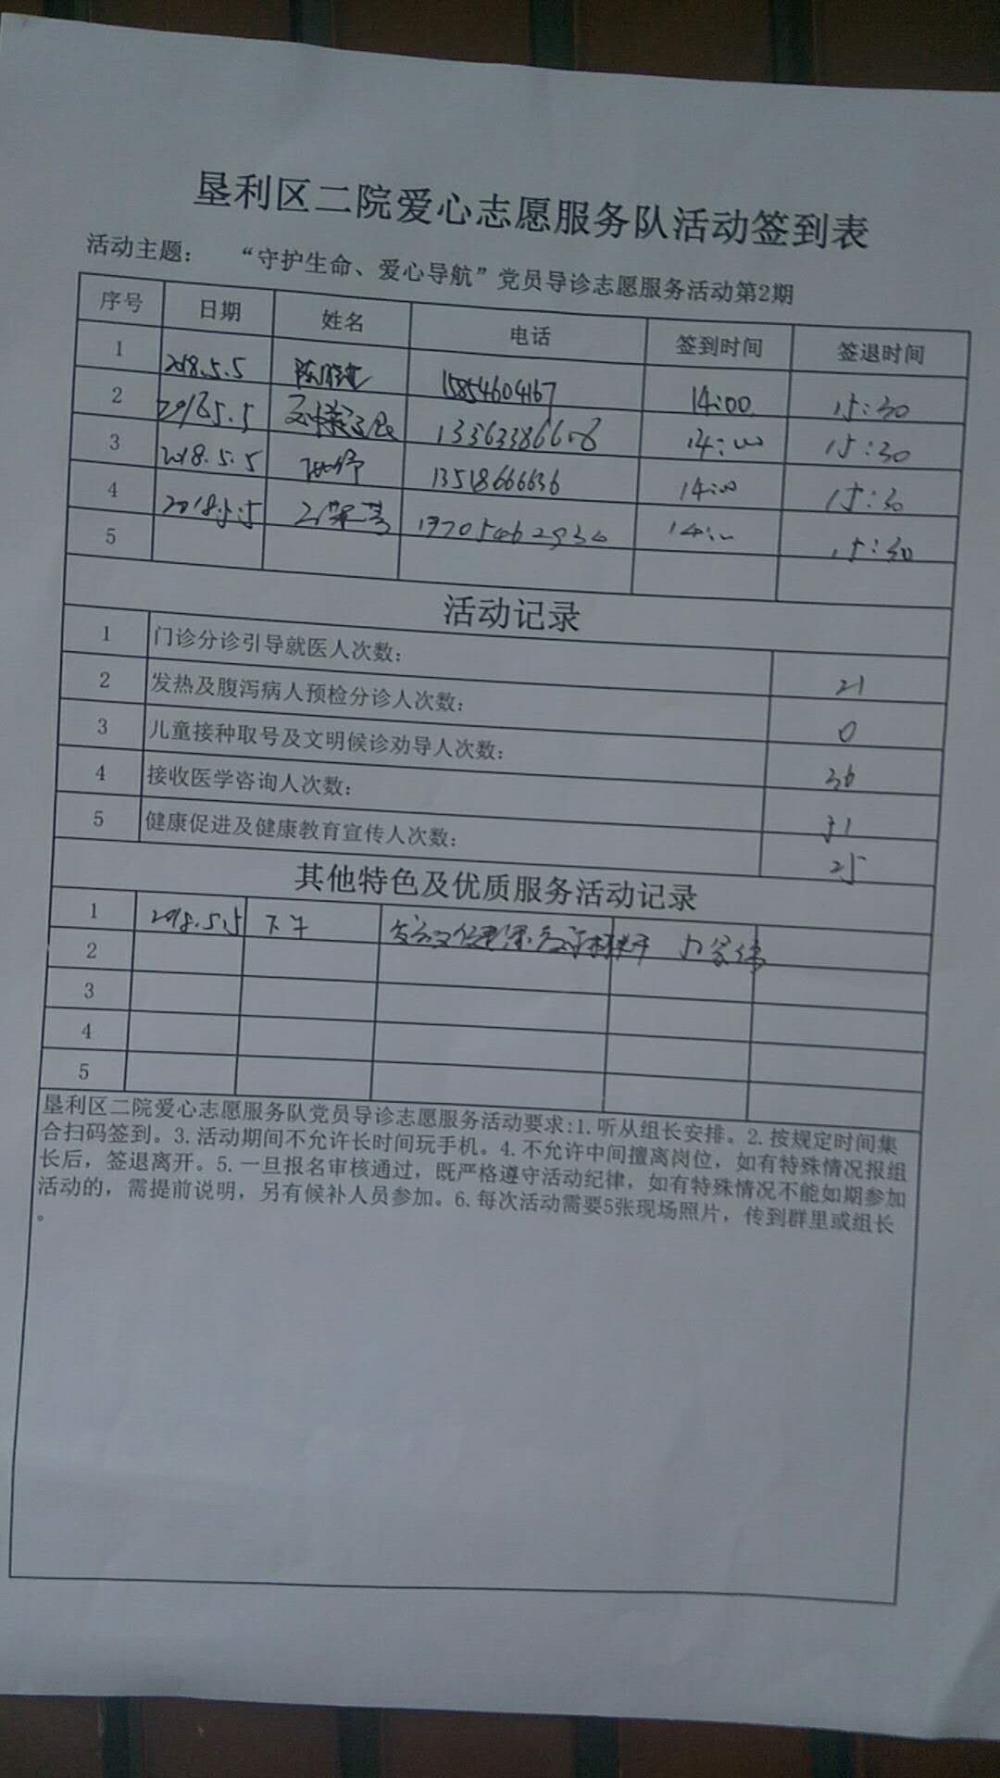 垦利区二院爱心志愿服务队活动签到表
活动主题： “守护生命、爱心导航”党员导诊志愿服务活动第2期
序号 日期 姓名 电话 签到时间 签退时间
1 2018.5.5 15854604167 14:00 15:30
2 2018.5.5 14:00 15:30
3 2018.5.5 13518666636 14:00 15:30
4 2018.5.5 14:00 15:30
5
活动记录
1 门诊分诊引导就医人次数： 21
2 发热及腹泻病人预检分诊人次数： 0
3 儿童接种取号及文明候诊劝导人次数： 36
4 接收医学咨询人次数： 31
5 健康促进及健康教育宣传人次数： 25
其他特色及优质服务活动记录
1 2018.5.5 下午
2
3
4
5
垦利区二院爱心志愿服务队党员导诊志愿服务活动要求:1.听从组长安排。2.按规定时间集
合扫码签到。3.活动期间不允许长时间玩手机。4.不允许中间擅离岗位，如有特殊情况报组
长后，签退离开。5.一旦报名审核通过，既严格遵守活动纪律，如有特殊情况不能如期参加
活动的，需提前说明，另有候补人员参加。6.每次活动需要5张现场照片，传到群里或组长
。